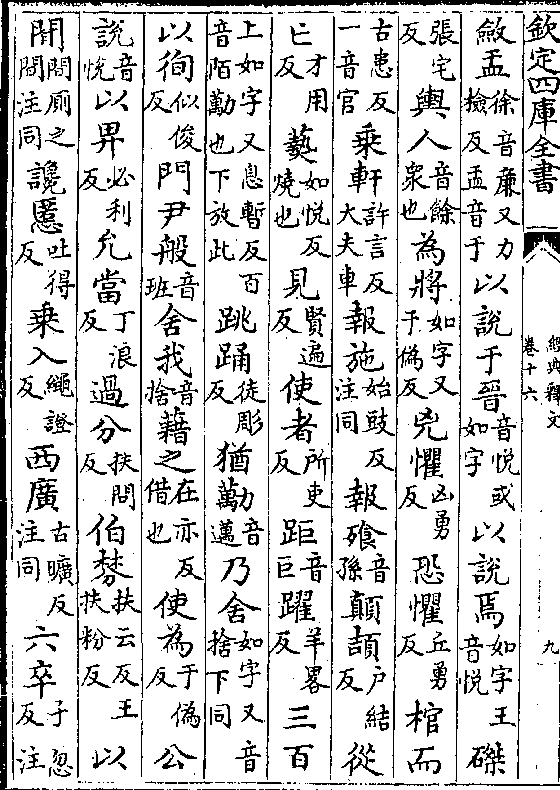 欽定四庫全書
經典釋文
卷十六
九
斂盂徐音廉又力檢反盂音于以說于晉音悅或如字以說焉如字王音悅磔
張宅反輿人音餘衆也為將如字又于偽反兇懼凶勇反恐懼丘勇反棺而
古患反一音官乘軒許言反大夫車報施始豉反注同報飱音孫顛頡戶結反從
亡才用反爇如悅反燒也見賢遍反使者所吏反距音巨躍羊畧反三百
上如字又息暫反百音陌勱也下放此跳踊徒彫反猶勱音邁乃舍如字又音捨下同
以徇似俊反門尹般音班舍我音捨藉之在亦反借也使為于偽反公
說音悅以畀必利反允當丁浪反過分扶問反伯棼扶云反王扶粉反以
間間廁之間注同讒慝吐得反乗入繩證反西廣古曠反注同六卒子忽反注